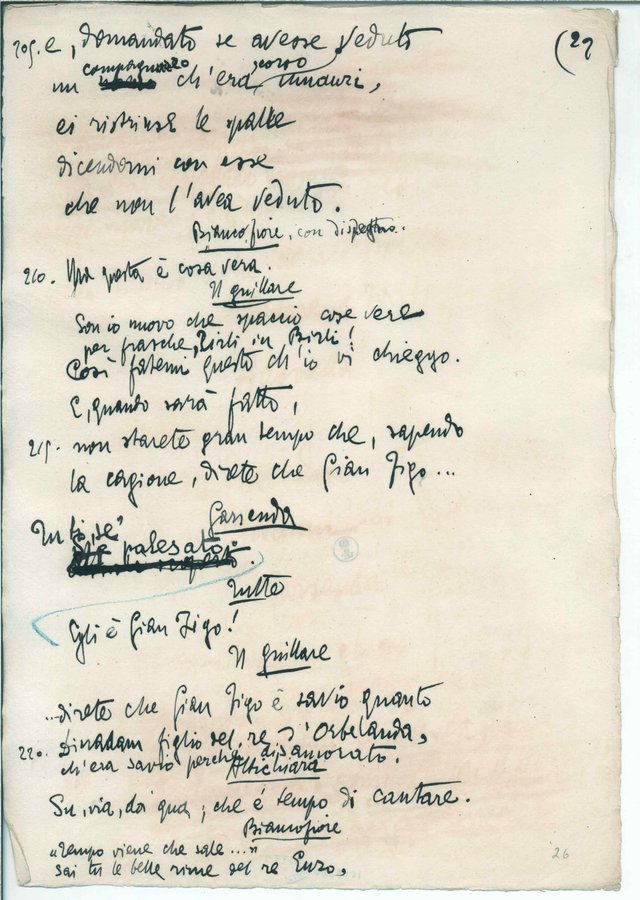 (29
205. e, domandato se avesse veduto
un compagnazzo ch'era corso innanzi,
ei ristrinse le spalle
dicendomi con esse
che non l'avea veduto.
Biancofiore, con dispetto.
210. Ma questa è cosa vera.
Il giullare
Son io nuovo che spaccio cose vere
per frasche, Birli in Birli!
Così fatemi questo ch'io vi chieggo.
E, quando sarà fatto,
215. non starete gran tempo che, sapendo
la cagione, direte che Gian Figo...
Garsenda
Tu ti se'
palesato.
Tutte
Egli è Gian Figo!
Il giullare
...direte che Gian Figo è savio quanto
220. Dinadam figlio del re d'Orbelanda,
ch'era savio perché disamorato.
Altichiara
Su, via, da' qua; che é tempo di cantare.
Biancofiore
"Tempo viene che sale..."
sai tu le belle rime del re Enzo,
26